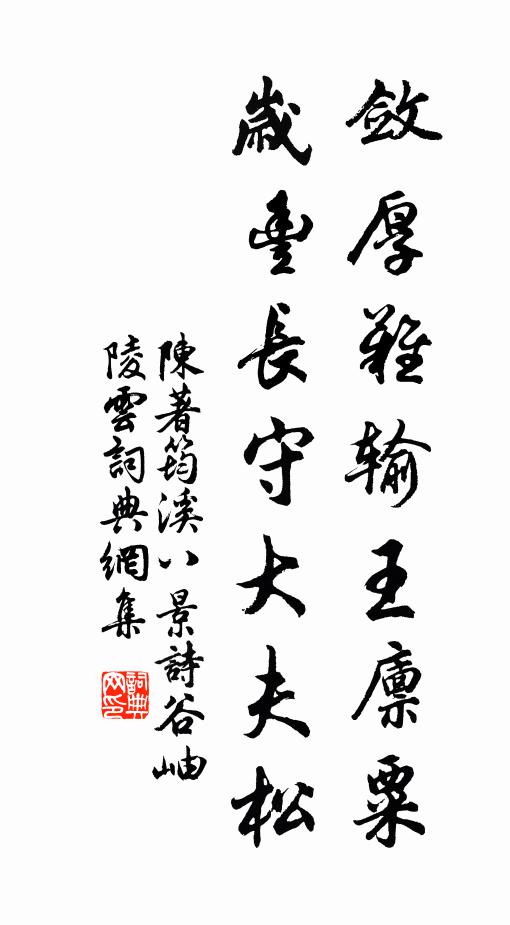 斂厚難输王廪粟
歲豐長守大夫松
陳著筠溪八景詩谷岫
陵雲詞典網集
詞典
网印